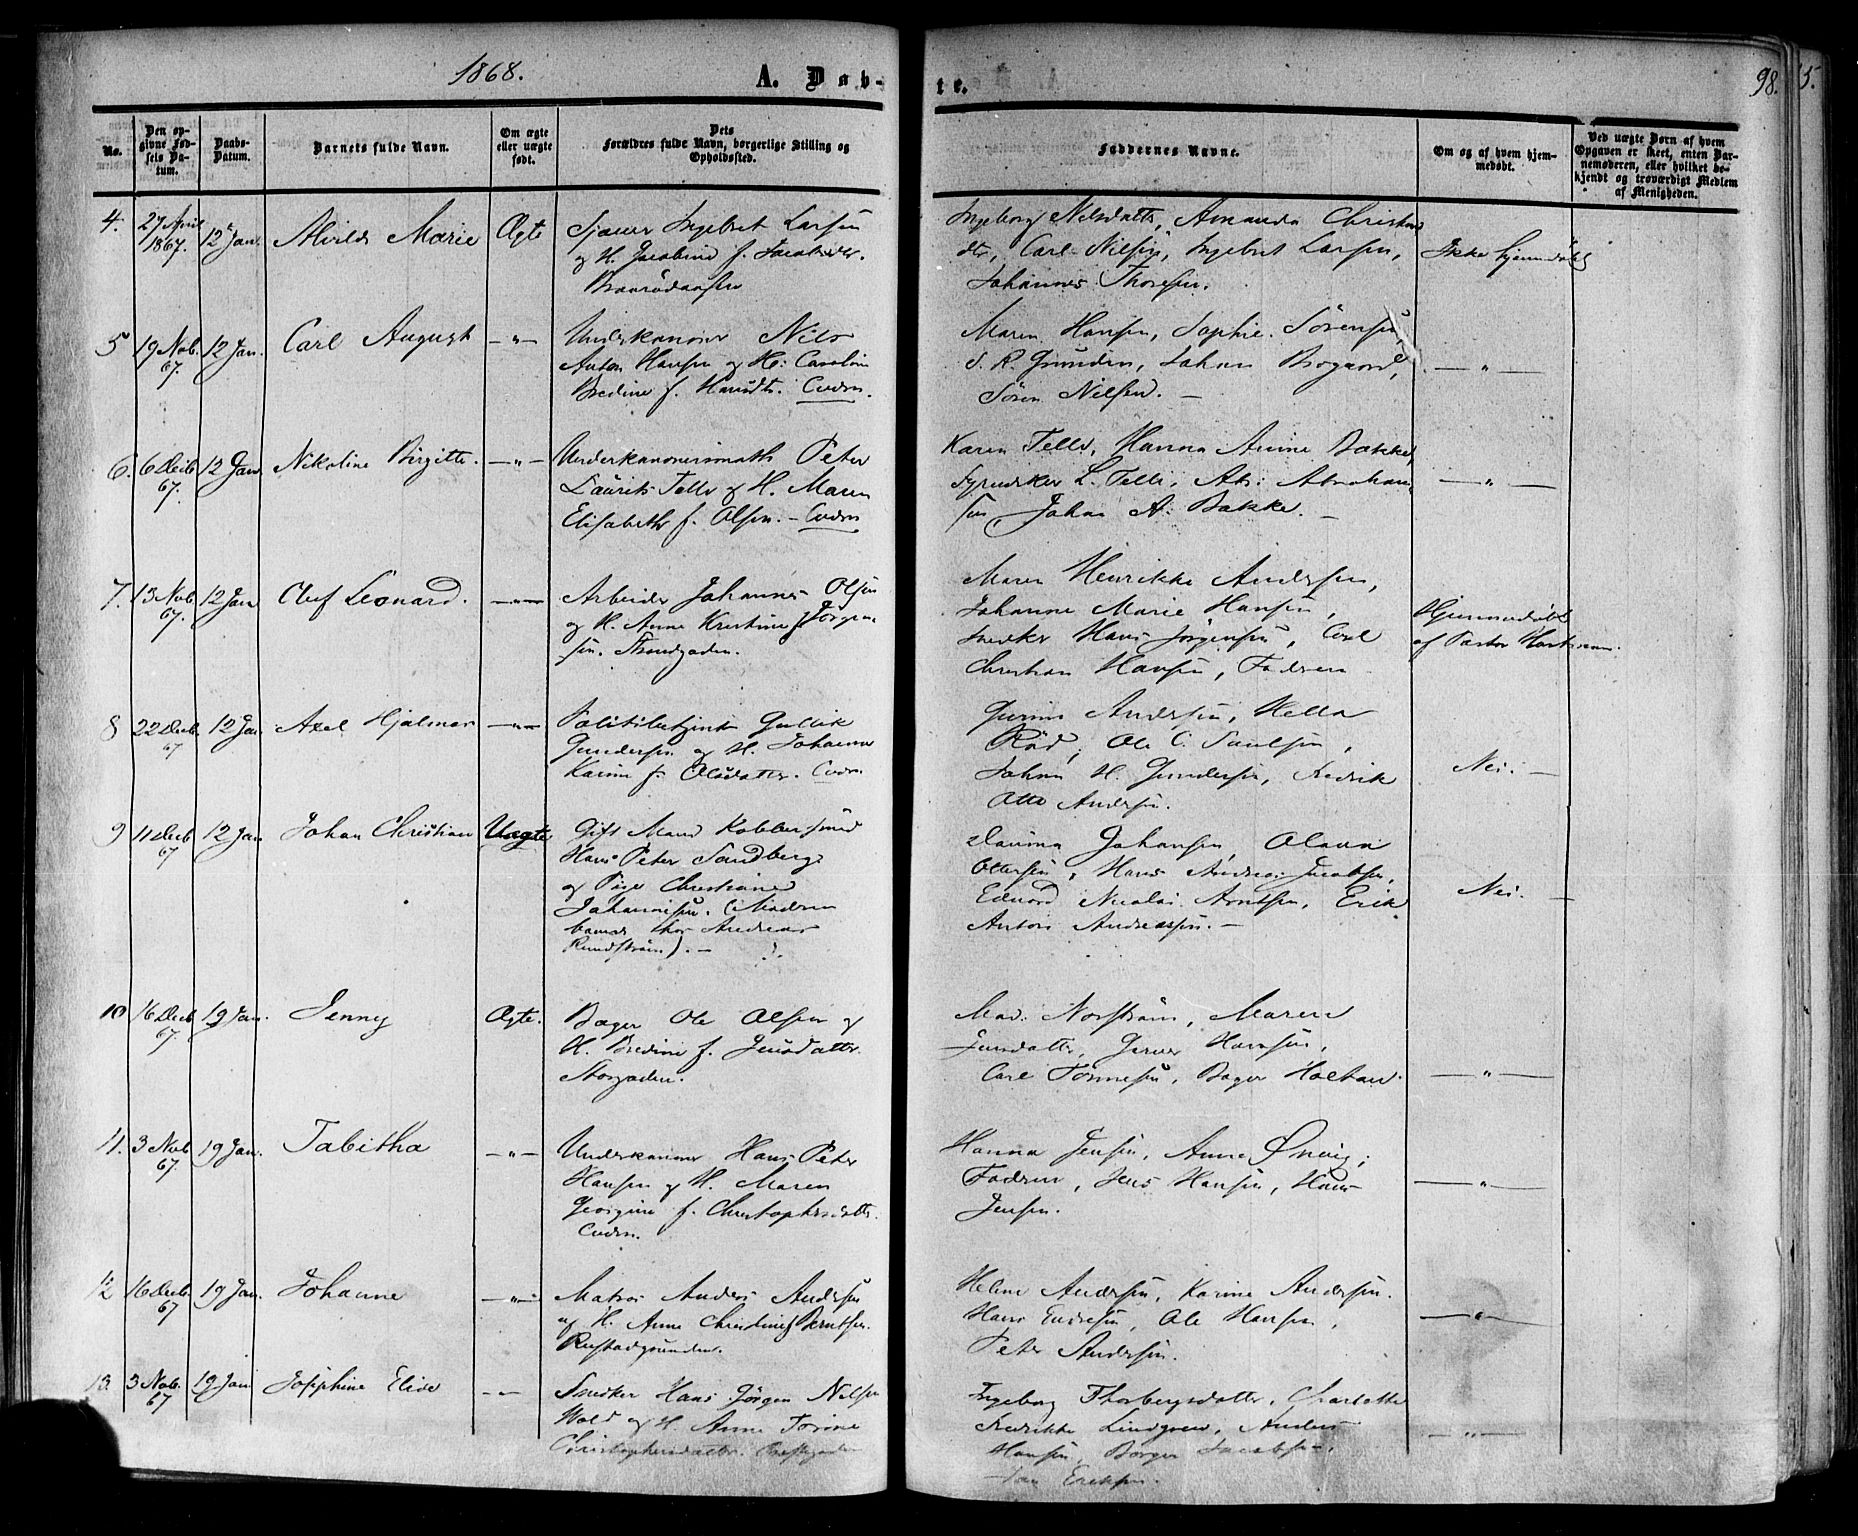 1868.
A. Døb-
te.
98.
5.
No.
Den op-
givne Fød-
sels Da-
tum.
Daabs-
Datum.
Barnets fulde Navn.
Om ægte
eller uægte
født.
Dets
Forældres fulde Navn, borgerlige Stilling og
Opholdssted.
Faddernes Navne.
Om og af hvem hjem-
medøbt.
Ved uægte Børn af hvem
Opgaven er skeet, enten Bar-
nemoderen, eller hvilket be-
kjendt og troværdigt Medlem
af Menigheden.
4.
27 April
1867.
12 Jan.
Alvilde Marie
Ægte
Sjauer Ingebret Larsen
og H. Jacobine f. Jacobsdtr.
Ingeborg Nilsdatter, Amanda Christians
dtr, Carl Nilsen, Ingebret Larsen,
Johannes Thoresen.
Ikke hjemmedøbt
5
19 Nob.
67.
12 Jan.
Carl August
—"—
Underkanoner Nils
Anton Hansen og H. Caroline
Bredine f. Hansdtr. Cvdrn.
Maren Hansen, Sophie Sörensen,
Johan Bogaard,
Sören Nilsen. —
—"—
6.
6 Decb
67.
12 Jan
Nikoline Birgitte.
—"—
Underkanonersmath Peter
Laurits Telle og H. Maren
Elisabeth f. Olsen. — Cvdrn
Karen Telle, Hanna Anine Bakke,
L. Telle, Abraham-
sen, Johan A. Bakke. —
—"—
7.
13 Nob.
67.
12 Jan
Oluf Leonard.
—"—
Arbeider Johannes Olsen
og H. Anne Kristine f. Jörgen-
sen. Strandgaden.
Maren Henrikke Andersen,
Johanne Marie Hansen,
Snedker Hans Jörgensen, Carl
Christian Hansen, Faderen
Hjemmedøbt
af Pastor Hartmann.
8
22 Decb.
67
12 Jan
Axel Hjalmar
—"—
Politibetjent Gulbrik
Gundersen og H. Johanne
Karine f. Olsdatter. Cvdrn.
Gurine Andersen, Hella
Röd, Ole C. Paulsen,
Johan H. Gundersen, Fredrik
Otto Andersen.
Nei. —
9
11 Decb
67
12 Jan
Johan Christian
Uægte
Gift Mand Kobbersmed
Hans Peter Sandberg
og Pige Christiane
Johannesen. (Moderen
Andreas
Rundström). —
Johansen, Olava
Ottersen, Hans Andreas Jacobsen,
Eduard Nicolai Arntsen, Erik
Anton Andreassen. —
Nei. —
10
16 Decb
67.
19 Jan.
Jenny
Ægte.
Bager Ole Olsen og
H. Bredine f. Jensdatter.
Storgaden.
Mad. Norström, Maren
Jensdatter, Garver Hansen,
Carl Tönnesen, Bager Holtan.
—"—
11.
3 Nob
67.
19 Jan.
Tabitha
—"—
Underkanoner Hans Peter
Hansen og H. Maren
Georgine f. Christophersdatter.
Cvdrn.
Hanna Jensen, Anne Ørvig,
Faderen, Jens Hansen, Hans
Jensen.
—"—
12
16 Decb.
67
19 Jan.
Johanne
—"—
Matros Anders Andersen
og H. Anne Christine f. Berntsen.
Rustadgrunden.
Heline Andersen, Karine Andersen.
Hans Endresen, Ole Hansen,
Peter Andersen.
—"—
13.
3 Nob.
67
19 Jan
Josephine Elise
—"—
Snedker Hans Jörgen Nilsen
Wold og H. Anne Torine
Christophersdatter.
Ingeborg Thorbergsdatter, Charlotte
Fredrikke Lindgreen, Anders
Hansen, Borger Jacobsen,
Eriksen.
—"—